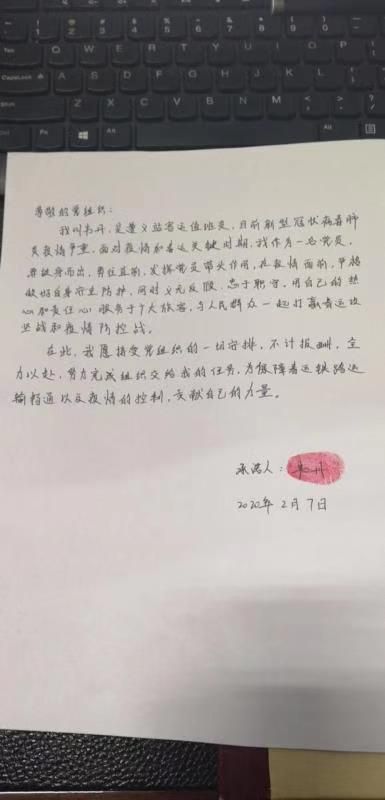 尊敬的党组织:
我叫韦丹,是遵义站客运值班员,目前新型冠状病毒肺
炎疫情严重,面对疫情和春运关键时期,我作为一名党员,
要挺身而出,勇往直前,发挥党员带头作用,在疫情面前,严格
做好自身卫生防护,同时义无反顾、忠于职守,用自己的热
心和责任心服务于广大旅客,与人民群众一起打赢春运攻
坚战和疫情防控战。
在此,我愿接受党组织的一切安排,不计报酬,全
力以赴,努力完成组织交给我的任务,为保障春运铁路运
输畅通以及疫情的控制,贡献自己的力量。
承诺人:
2020年2月7日